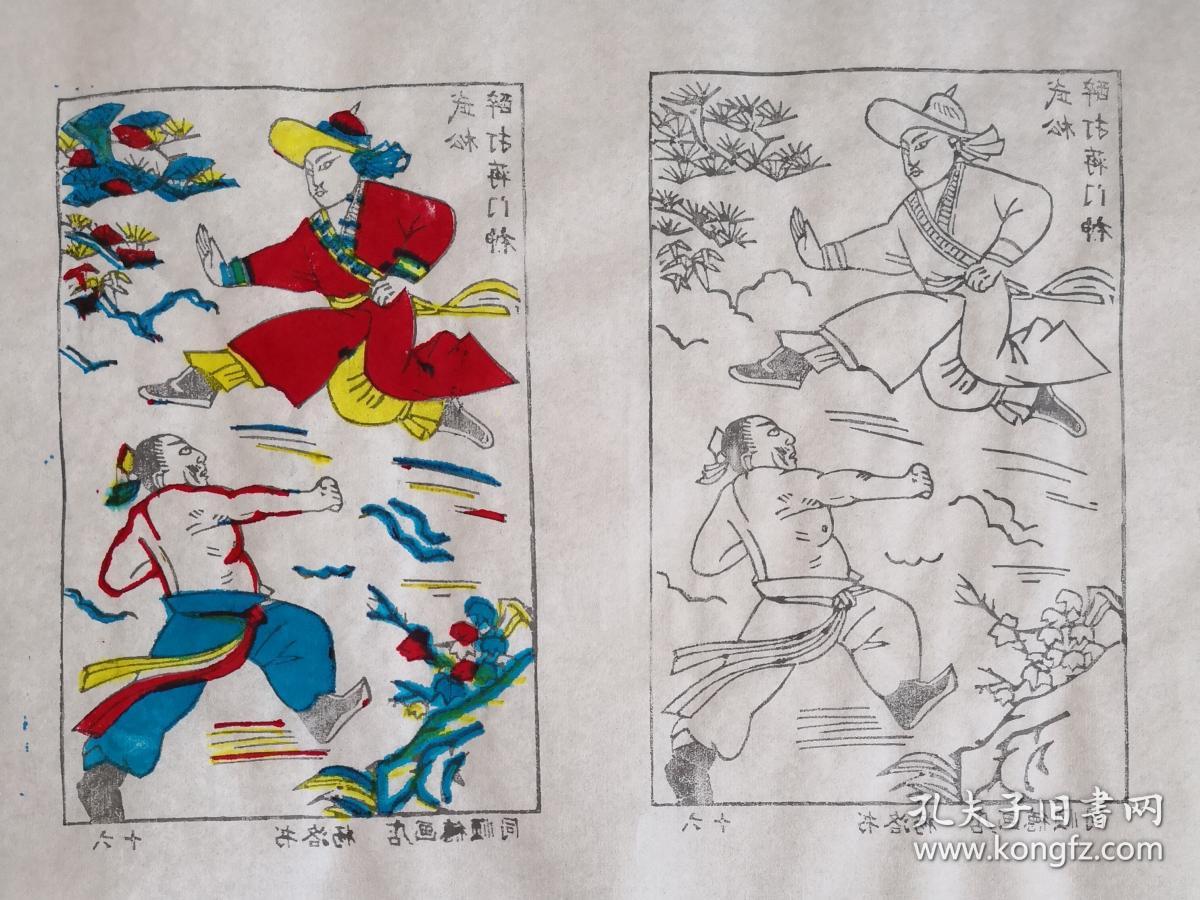 武松
醉打蒋门神
同顺德画店 杨洛书
十六
武松
醉打蒋门神
画店 杨洛书
十六
孔夫子旧书网
www.kongfz.com